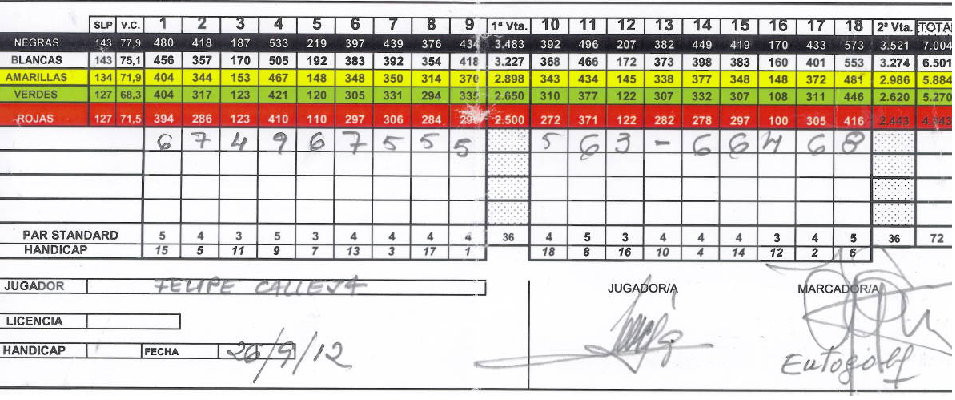 SLP V.C. 1 2 3 4 5 6 7 8 9 1ª Vta. 10 11 12 13 14 15 16 17 18 2ª Vta. TOTAL
NEGRAS 143 77,9 480 418 187 533 219 397 439 376 434 3.483 392 496 207 382 449 419 170 433 573 3.521 7.004
BLANCAS 143 75,1 456 357 170 505 192 383 392 354 418 3.227 368 466 172 373 398 383 160 401 553 3.274 6.501
AMARILLAS 134 71,9 404 344 153 467 148 348 350 314 370 2.898 343 434 145 338 377 348 148 372 481 2.986 5.884
VERDES 127 68,3 404 317 123 421 120 305 331 294 335 2.650 310 377 122 307 332 307 108 311 446 2.620 5.270
ROJAS 127 71,5 394 286 123 410 110 297 306 284 2.500 272 371 122 282 278 297 100 305 416 2.443
6 7 4 9 6 7 5 5 5 5 6 3 - 6 6 4 6 8
PAR STANDARD 5 4 3 5 3 4 4 4 4 36 4 5 3 4 4 4 3 4 5 36 72
HANDICAP 15 5 11 9 7 13 3 17 1 18 8 16 10 4 14 12 2 6
JUGADOR FELIPE CALLEJA JUGADOR/A MARCADOR/A
LICENCIA
HANDICAP FECHA 26/9/12 Eutogolf